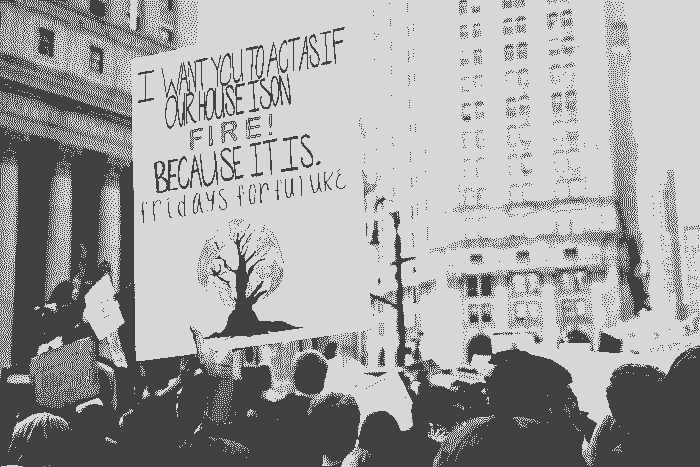 I WANT YOU TO ACT AS IF
OUR HOUSE IS ON
FIRE!
BECAUSE IT IS.
fridays for future